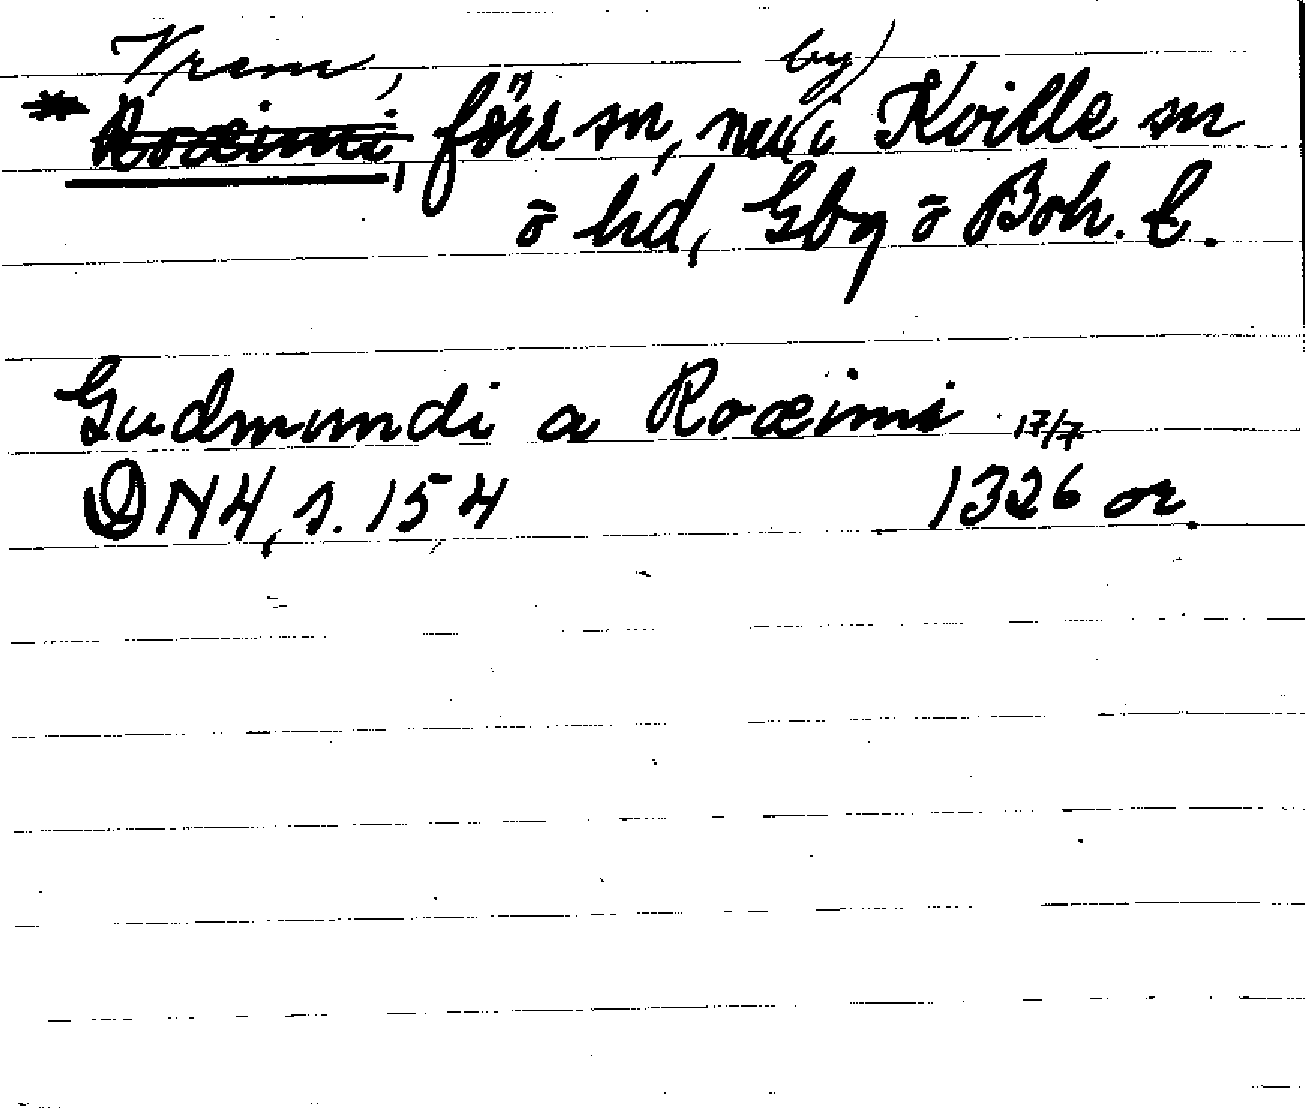 Vrem, by)
* Roæimi, förr sn, nu i Kville sn
o hd, Gbg o Boh. l.
Gudmundi a Roæimi 17/7
DN 4, s. 154 1326 or.